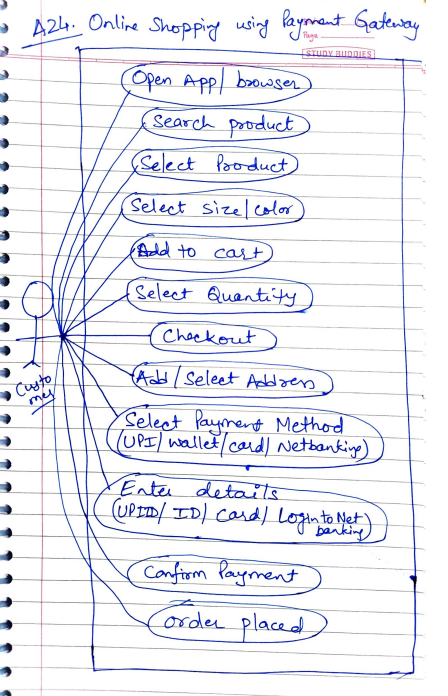 A24. Online Shopping using Payment Gateway
Page
STUDY BUDDIES
Open App/browser
Search product
Select Product
Select size/color
Add to cart
Select Quantity
Checkout
Add/Select Address
Select Payment Method
(UPI/wallet/card/Netbanking)
Enter details
(UPIID/ID/Card/Login to Net
banking)
Confirm Payment
Order placed
Custo
mer